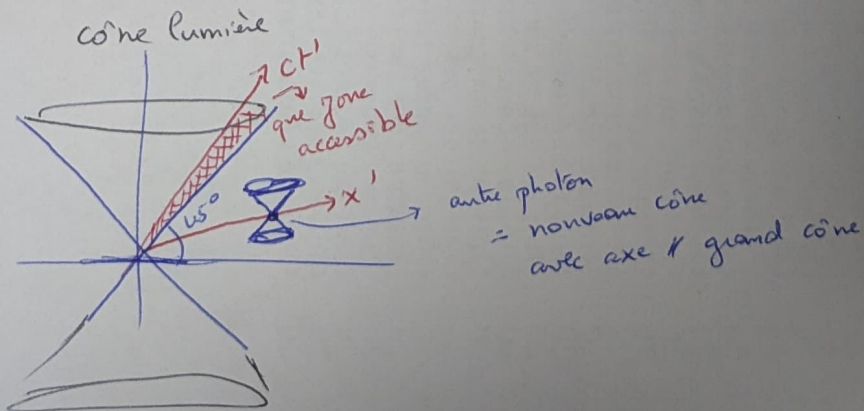 cône lumière
ct'
que zone
accessible
45°
x'
autre photon
= nouveau cône
avec axe // grand cône